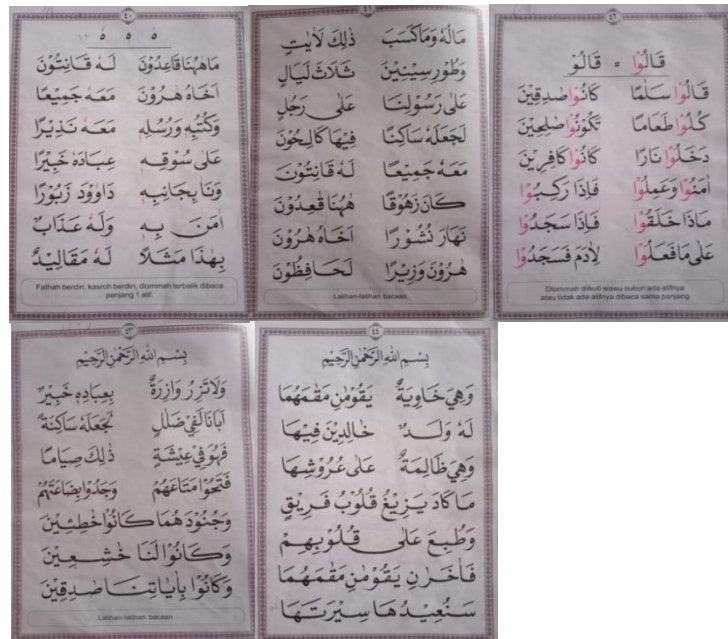 ٤٠
مَاهٰهُنَا قَاعِدُوْنَ لَهٗ قَانِتُوْنَ
اَخَاهُ هٰرُوْنَ مَعَهٗ جَمِيْعًا
وَكُتُبِهٖ وَرُسُلِهٖ مَعَهٗ نَذِيْرًا
عَلٰى سُوْقِهٖ عِبَادَهٗ خَبِيْرًا
وَنَا بِجَانِبِهٖ دَاوٗودَ زَبُوْرًا
اٰمَنَ بِهٖ وَلَهٗ عَذَابٌ
بِهٰذَا مَثَلًا لَهٗ مَقَالِيْدُ
Fathah berdiri, kasroh berdiri, dlommah terbalik dibaca
panjang 1 alif.
٤١
مَالُهٗ وَمَاكَسَبَ ذٰلِكَ لَاٰيٰتٍ
وَطُوْرِسِيْنِيْنَ ثَلَاثَ لَيَالٍ
عَلٰى رَسُوْلِنَا عَلٰى رَجُلٍ
لَجَعَلَهٗ سَاكِنًا فِيْهَا كَالِحُوْنَ
مَعَهٗ جَمِيْعًا لَهٗ قَانِتُوْنَ
كَانَ زَهُوْقًا هٰهُنَا قٰعِدُوْنَ
نَهَارَ نُشُوْرًا اَخَاهُ هٰرُوْنَ
هٰرُوْنَ وَزِيْرًا لَحَافِظُوْنَ
Latihan-latihan bacaan
٤٢
قَالُوْا = قَالُوْ
قَالُوْا سَلٰمًا كَانُوْا صٰدِقِيْنَ
كُلُوْا طَعَامًا تَكُوْنُوْا صٰلِحِيْنَ
دَخَلُوْا نَارًا كَانُوْا كَافِرِيْنَ
اٰمَنُوْا وَعَمِلُوْا فَاِذَا رَكِبُوْا
مَاذَا خَلَقُوْا فَاِذَا سَجَدُوْا
عَلٰى مَافَعَلُوْا لِاٰدَمَ فَسَجَدُوْا
Dlommah diikuti wawu sukun ada alifnya
atau tidak ada alifnya dibaca sama panjang
٤٣
بِسْمِ اللهِ الرَّحْمٰنِ الرَّحِيْمِ
وَلَا تَزِرُ وَازِرَةٌ بِعِبَادِهٖ خَبِيْرٌ
اَبَانَا لَفِيْ ضَلٰلٍ لَجَعَلَهٗ سَاكِنَةً
فَهُوَ فِيْ عِيْشَةٍ ذٰلِكَ صِيَامًا
فَتَحُوْا مَتَاعَهُمْ وَجَدُوْا بِضَاعَتَهُمْ
وَجُنُوْدَهُمَا كَانُوْا خٰطِئِيْنَ
وَكَانُوْا لَنَا خٰشِعِيْنَ
وَكَانُوْا بِاٰيَاتِنَا صٰدِقِيْنَ
Latihan-latihan bacaan
٤٤
بِسْمِ اللهِ الرَّحْمٰنِ الرَّحِيْمِ
وَهِيَ خَاوِيَةٌ يَقُوْمٰنِ مَقَمَهُمَا
لَهٗ وَلَدٌ خَالِدِيْنَ فِيْهَا
وَهِيَ ظَالِمَةٌ عَلٰى عُرُوْشِهَا
مَاكَادَ يَزِيْغُ قُلُوْبُ فَرِيْقٍ
وَطُبِعَ عَلٰى قُلُوْبِهِمْ
فَاٰخَرٰنِ يَقُوْمٰنِ مَقَمَهُمَا
سَنُعِيْدُهَا سِيْرَتَهَا